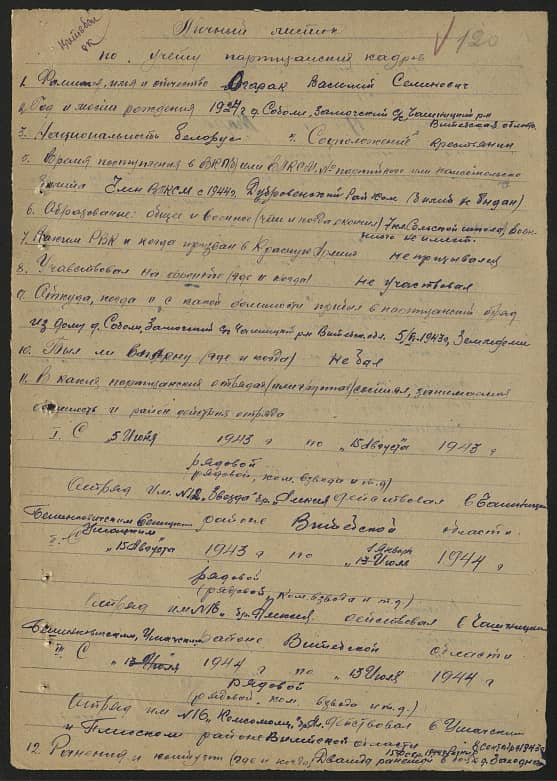 120
Личный листок
по учёту партизанских кадров
1. Фамилия, имя и отчество Огарак Василий Семинович
2. Год и место рождения 1924 г д. Соболи, Замочский с/с Чашницкий рн
Витебская область
3. Национальность Белорус. 4. Соцположение Крестьянин
5. Время поступления в ВКП(б) или ВЛКСМ, № партийного или комсомольского
билета Член ВЛКСМ с 1944 г. Дубровенский Рай Ком (билет не выдан)
6. Образование: общее и военное (чем и когда окончил) 7 кл. Сельской школы, Воен-
ного не имеет.
7. Каким РВК и когда призван в Красную Армию не призывался
8. Участвовал на фронте (где и когда) Не участвовал
9. Откуда, когда и с какой должности прибыл в партизанский отряд
из дому д. Соболи, Замочский с/с Чашницкий рн Витебск. обл. 5/VI.1943 г, Земледелие
10. Был ли в плену (где и когда) Не был
11. В каких партизанских отрядах состоял, занимаемая
должность и район действия отряда
I. С "5 Июня 1943 г по "15 Августа" 1943 г
рядовой
(рядовой, ком. взвода и т.д)
Отряд им. №12 "Звезда" бр. действовал в Чашницком
Бешенковичском районе Витебской области.
II. С "15 Августа" 1943 г по 1 Января 1944 г
рядовой
(рядовой, ком взвода и т.д)
Отряд им №16 бр. действовал в Чашницком
Бешенковичском, Ушачском районе Витебской области
III С 1944 г по "13 Июля 1944 г
рядовой
(рядовой, ком. взвода и т.д.)
Отряд им №16, Комсомол, действовал в Ушачском
и районе Витебской области
12. Ранения и контузии (где и когда) Дважды ранетый